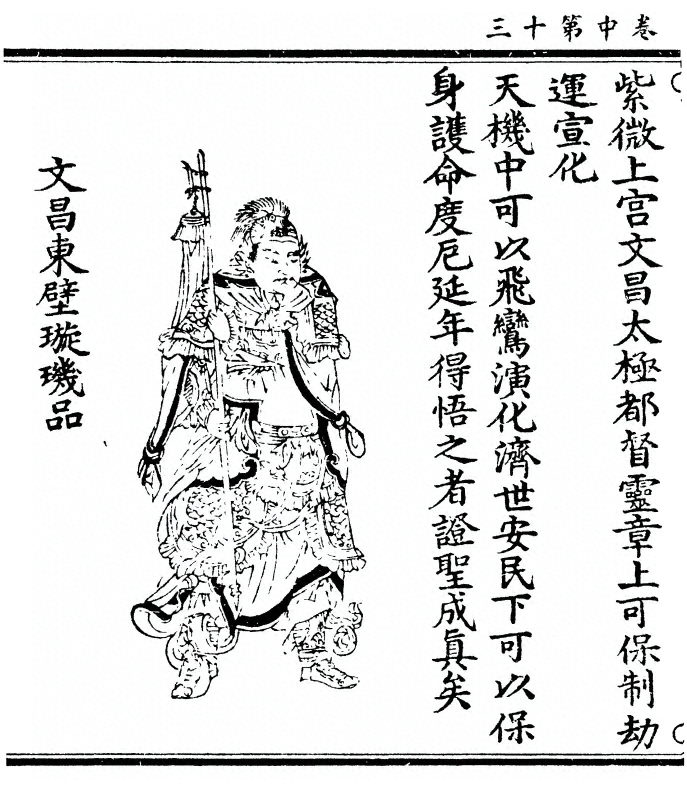 卷中第十三
紫微上宮文昌太極都督靈章上可保制劫
運宣化
天機中可以飛鸞演化濟世安民下可以保
身護命度厄延年得悟之者證聖成眞矣
文昌東壁璇璣品